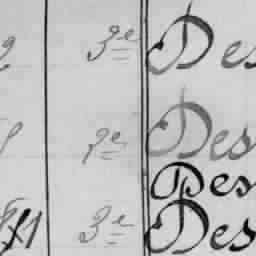 3e Des
3e Des
Des
3e Des